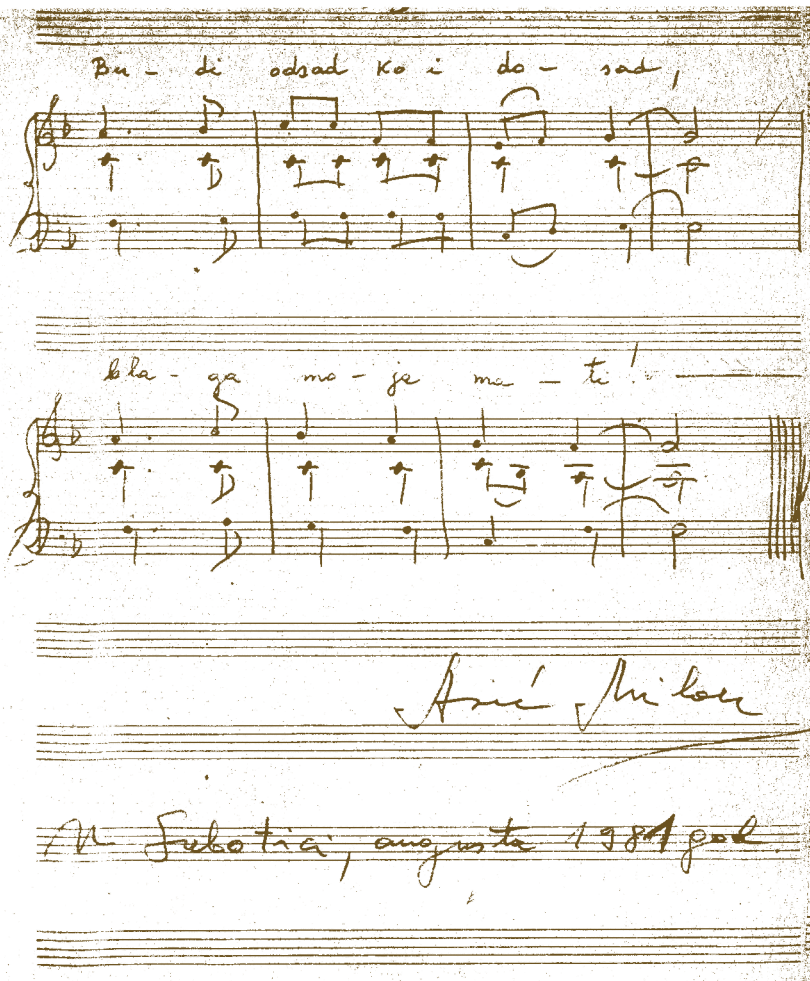 Bu - di odsad ko i do - sad,
bla - ga mo - ja ma - ti!
Asić Milan
U Subotici, augusta 1981 god.